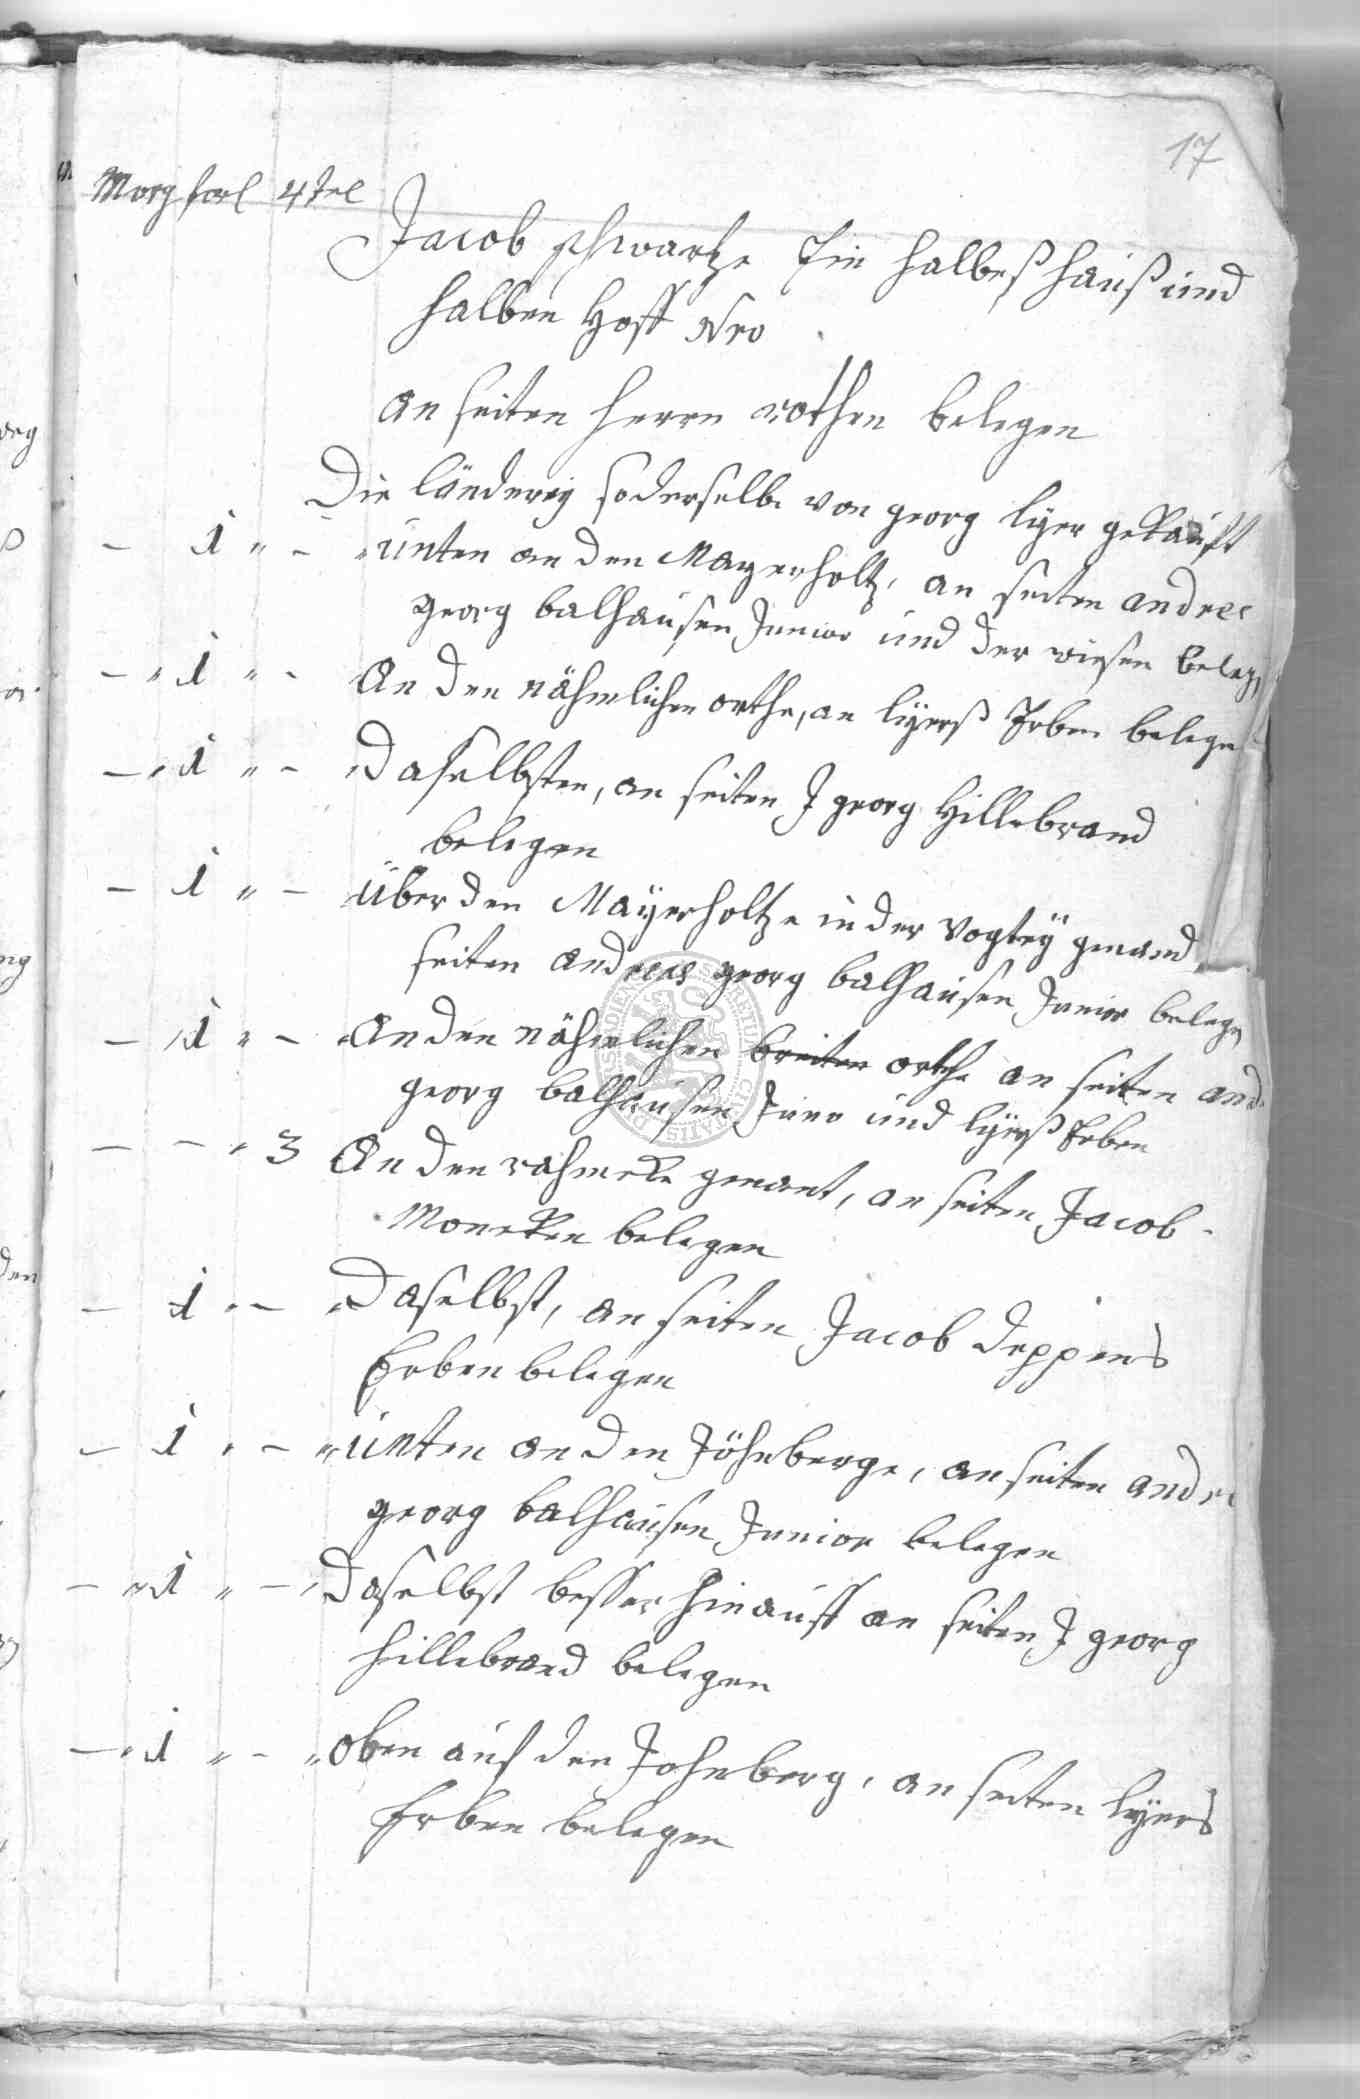 17
Morg forl 4tel
Jacob schwartze Ein halbeß hauß und
halben Hoff Nro
an seiten herrn rothen belegen
Die länderey so derselbe von georg lyer gekaufft
- 1 " - " unten an den Mayerholtz, an seiten andrea
georg balhausen Junior und der wiesen belegen
- " 1 " - An den nähmlichen orthe, an lyerß Erben belegen
- " 1 " - " Daselbsten, an seiten J georg Hillebrand
belegen
- 1 " - über den Mayerholtze in der Vogtey genand
seiten andreas georg balhausen Junior belegen
- " 1 " - " An den nähmlichen breiten orthe an seiten and
georg balhausen Junior und lyerß Erben
- - " 3 An den rahmeke genant, an seiten Jacob
Moneken belegen
- 1 " - " Daselbst, an seiten Jacob Deppens
Erben belegen
- 1 " - " unten an den Jöhnberge, an seiten andre
georg balhausen Junior belegen
- " 1 " - " Daselbst besser hinauff an seiten J georg
hillebrand belegen
- " 1 " - " oben auf den Johnberg, an seiten lyers
Erben belegen